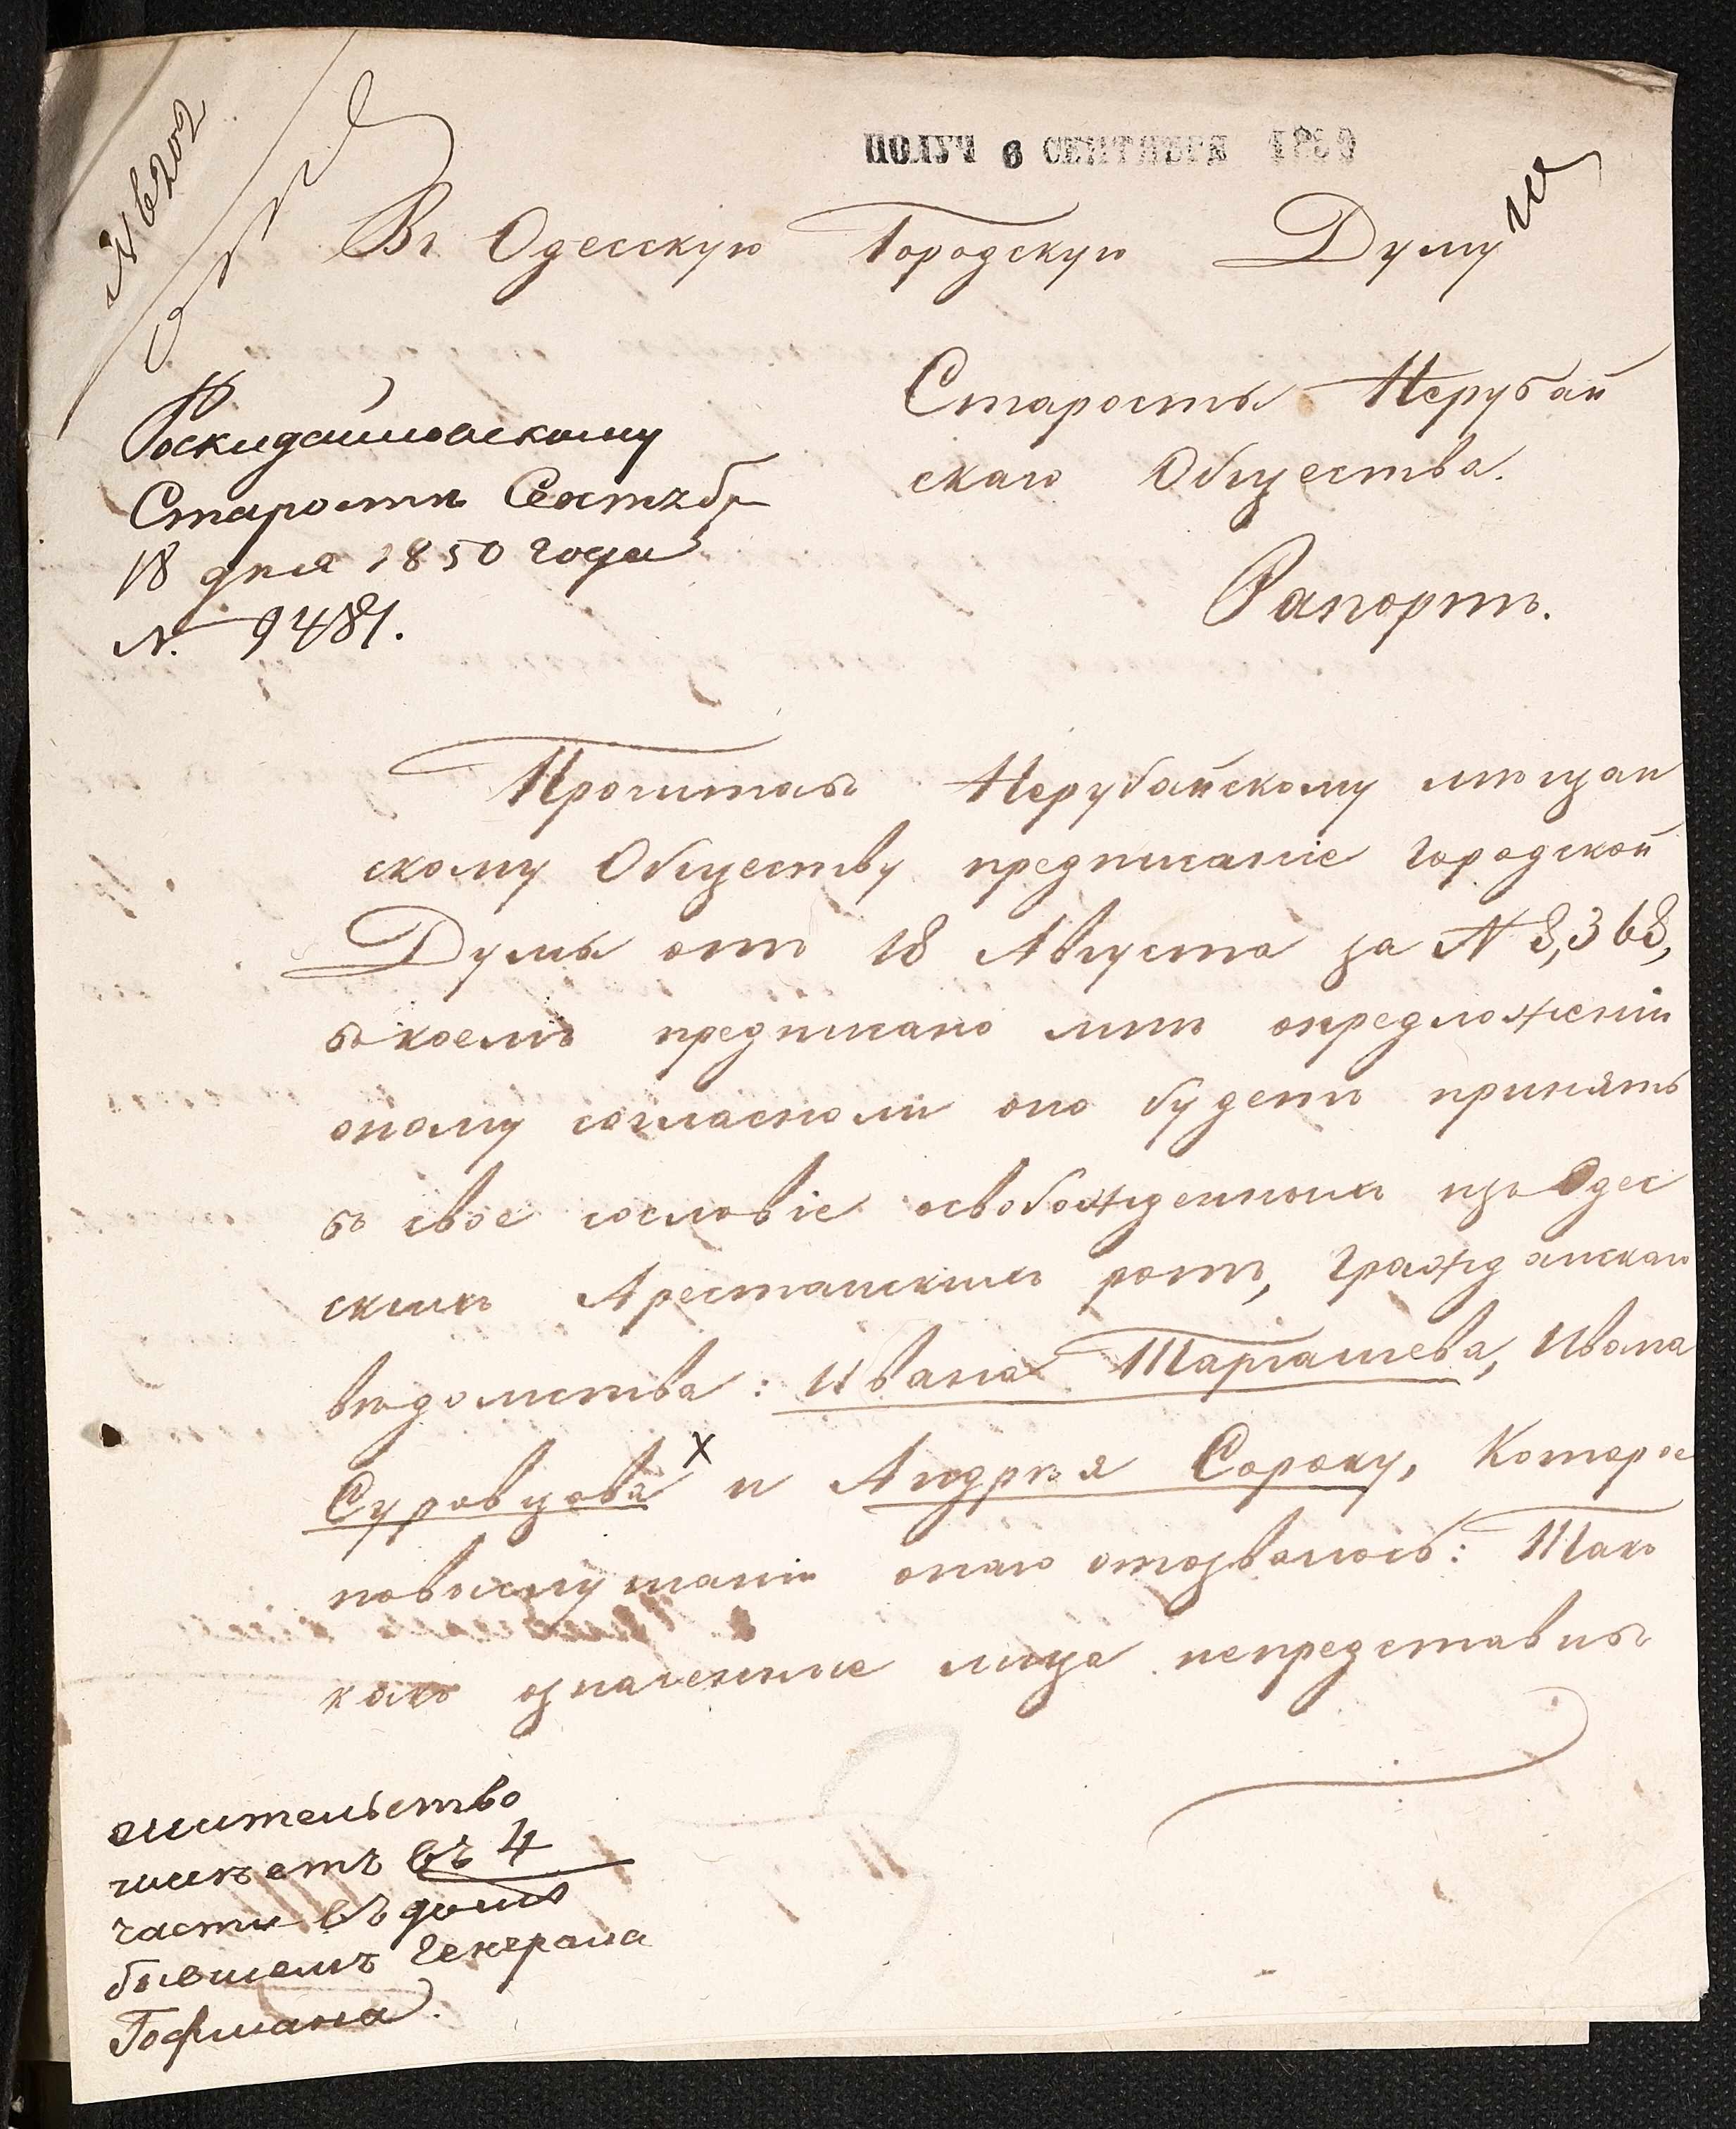 № 6202
ПОЛУЧ 6 СЕНТЯБРЯ 1850
Въ Одесскую Городскую Думу
Старосты Нерубай
скаго Общества.
Рапортъ.
Роскидайловскому
Старостѣ Сентябр
18 дня 1850 года
№ 9481.
Прочитавъ Нерубайскому мѣщан
скому Обществу предписаніе Городской
Думы отъ 18 Августа за № 8,368,
въ коемъ предписано мнѣ опредложеніи
оному согласноли оно будетъ принять
въ свое сословіе освобожденныхъ изъ Одес
скихъ Арестанскихъ ротъ, Гражданскаго
вѣдомства: Ивана Таргашева, Ивана
Суровцова х и Андрѣя Сороку, Которое
повыслушаніи онаго отозвалось: Такъ
какъ означенные лица непредставны
жительство
имѣетъ въ 4
части въ домѣ
бывшемъ Генерала
Гофмана.